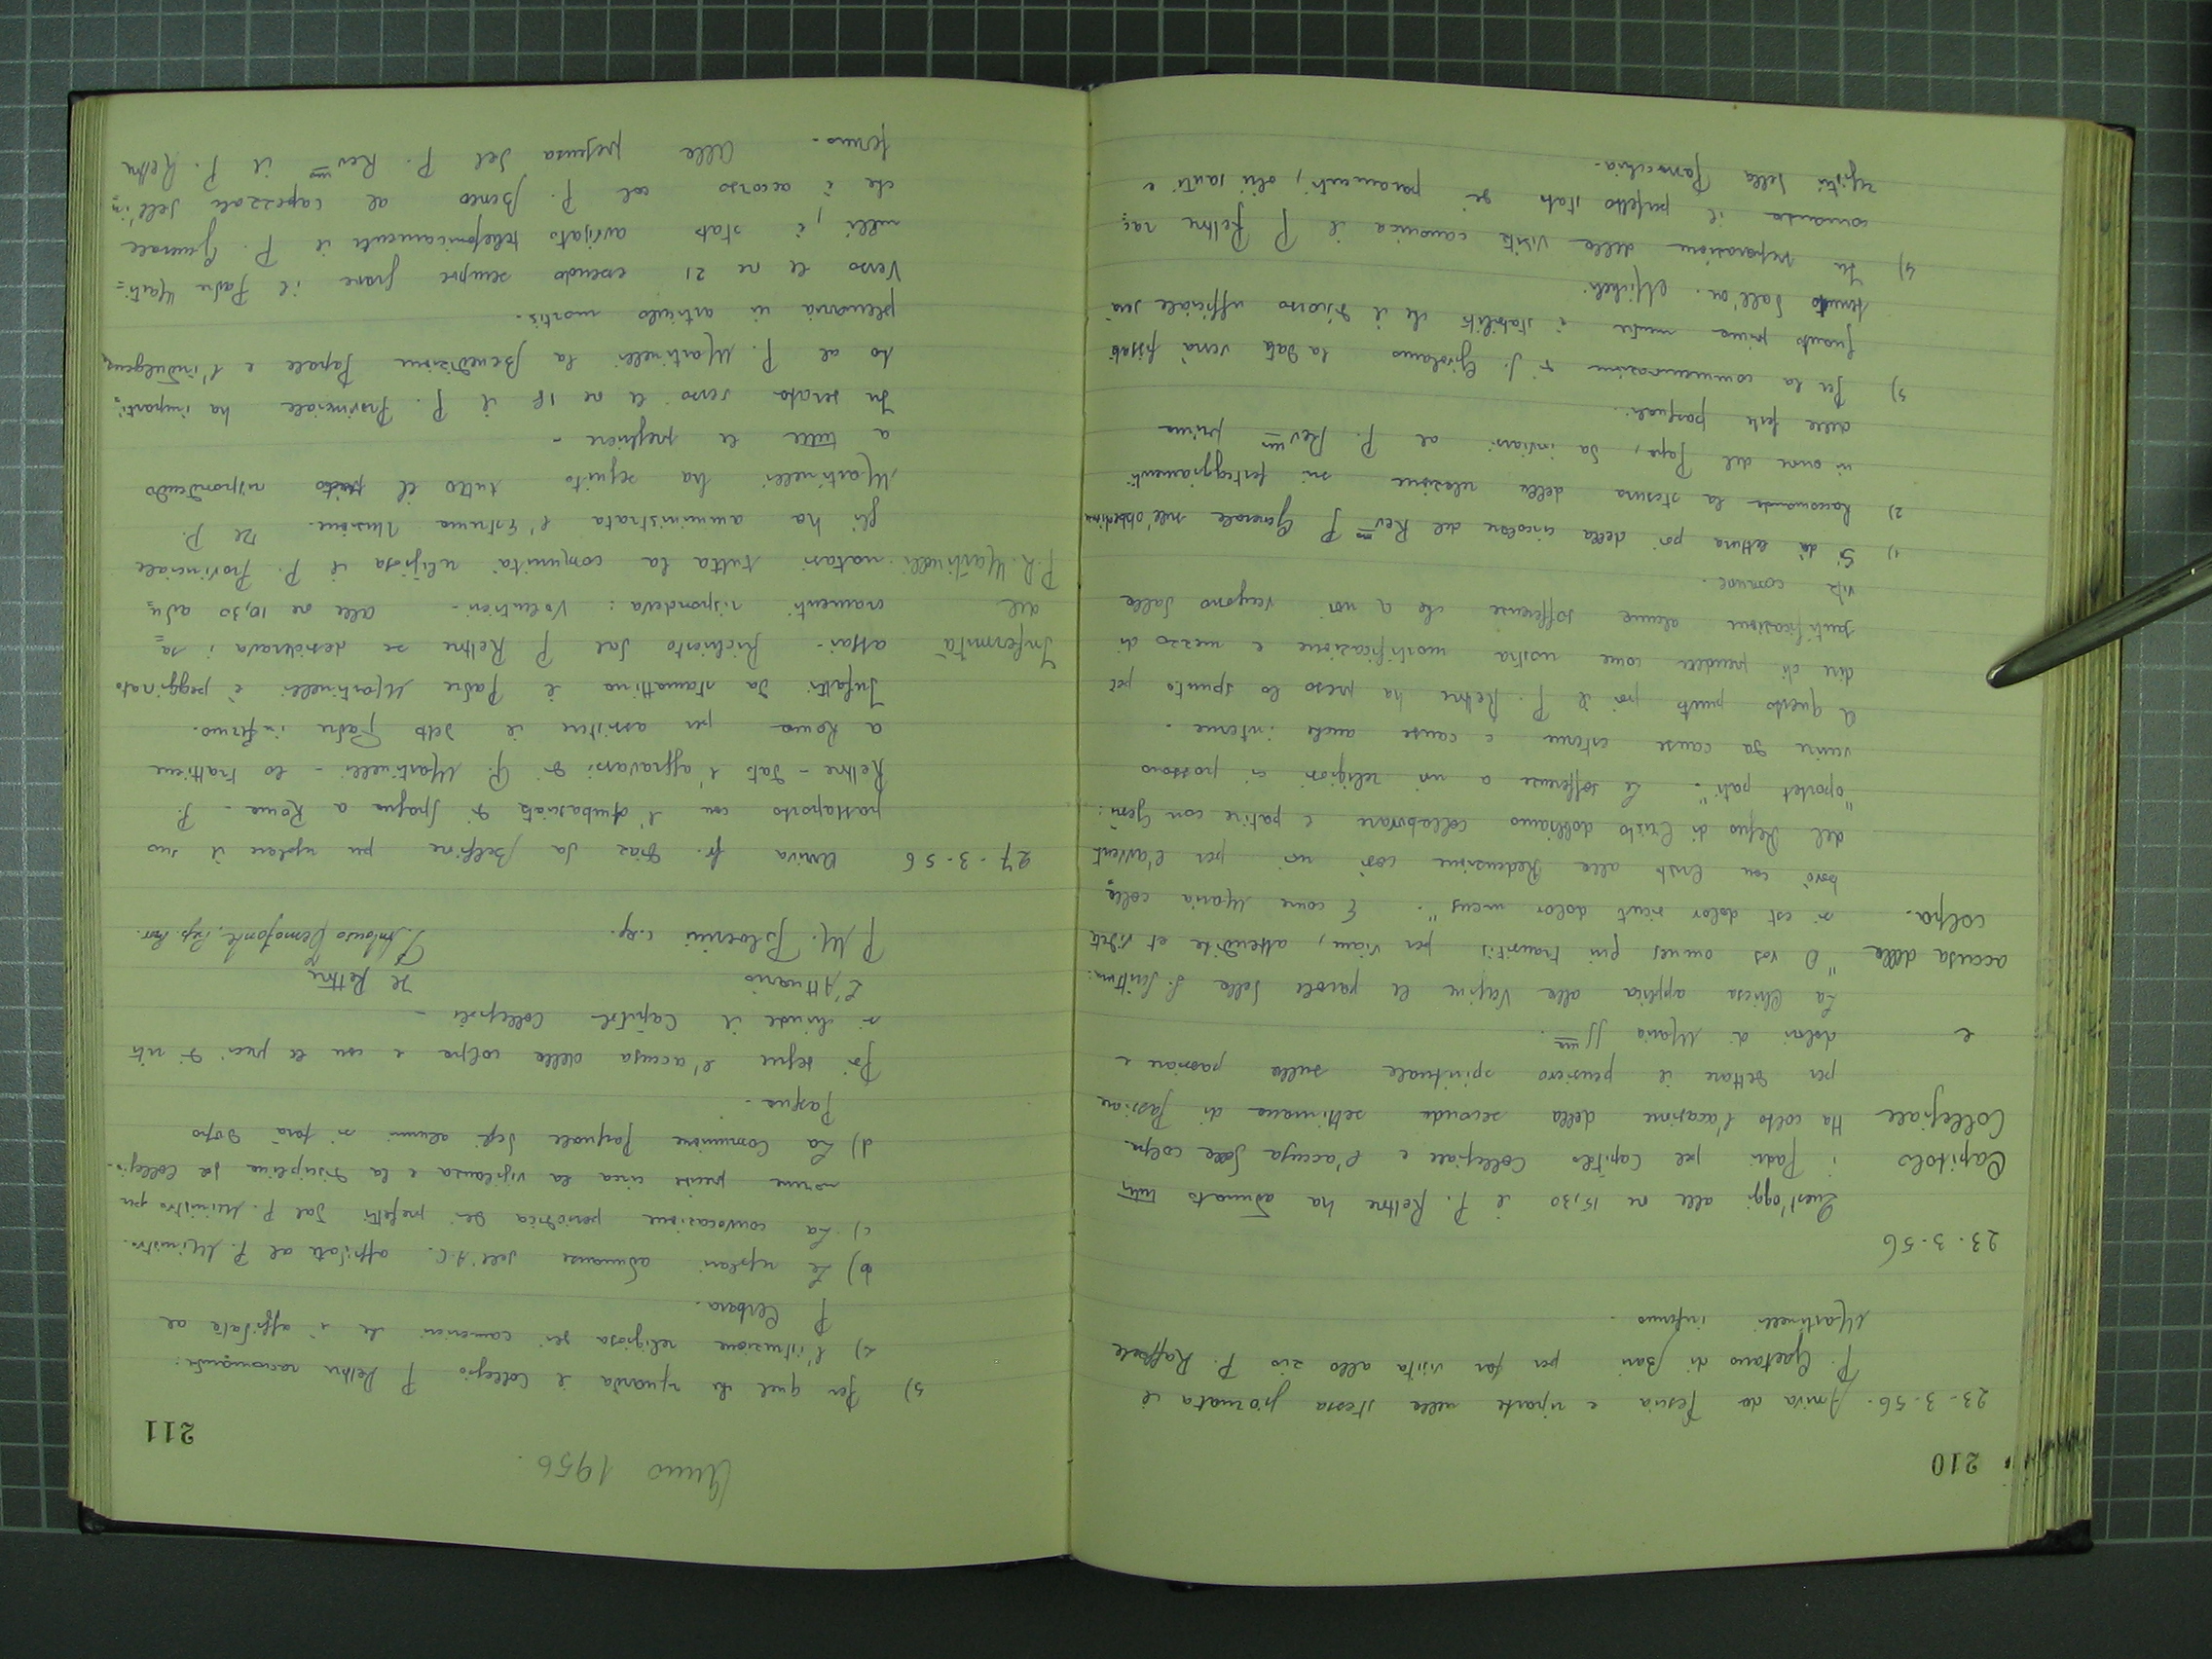 210
23-3-56. Arriva da Pescia e riparte nella stessa giornata il
P. Gaetano di Bari per far visita allo zio P. Raffaele
Martinelli infermo.
23-3-56
Quest'oggi alle ore 15,30 il P. Rettore ha adunato tutti
Capitolo i Padri pel Capitolo Collegiale e l'accusa delle colpe
Collegiale Ha colto l'occasione della seconda settimana di Passione
per dettare il pensiero spirituale sulla passione e
e dolori di Maria SS.ma.
La Chiesa applica alla Vergine le parole della S. Scrittura:
accusa delle "O vos omnes qui transitis per viam, attendite et videte
colpa. si est dolor sicut dolor meus". E come Maria colla=
borò con Cristo alla Redenzione così noi per l'avvento
del Regno di Cristo dobbiamo collaborare e patire con Gesù:
"oportet pati". Le sofferenze a noi religiosi ci possono
venire da cause esterne e cause anche interne.
A questo punto poi il P. Rettore ha preso lo spunto per
dire di prendere come nostra mortificazione e mezzo di
purificazione alcune sofferenze che a noi vengono dalla
vita comune.
1) Si dà lettura poi della circolare del Rev.mo P. Generale sull'obbedienza
2) Raccomanda la stesura della relazione sui festeggiamenti
in onore del Papa, da inviarsi al P. Rev.mo prima
delle feste pasquali.
3) Per la commemorazione di S. Girolamo la data verrà fissata
quanto prima mentre è stabilito che il discorso ufficiale sarà
tenuto dall'on. Micheli.
4) In preparazione della visita canonica il P. Rettore rac=
comanda il perfetto stato dei paramenti, olii santi e
registri della Parrocchia.
Anno 1956.
211
5) Per quel che riguarda il Collegio P. Rettore raccomanda:
a) L'istruzione religiosa dei camerieri che è affidata al
P. Cerbara.
b) Le regolari adunanze dell'A.C. affidate al P. Ministro.
c) La convocazione periodica dei prefetti dal P. Ministro per
norme precise circa la vigilanza e la disciplina in Collegio.
d) La Comunione Pasquale degli alunni si farà dopo
Pasqua.
Poi segue l'accusa della colpa e con le preci di rito
si chiude il Capitolo Collegiale -
L'Attuario Il Rettore
P. M. c.r.s. P. Antonio Prep. Prov.
27-3-56 Arriva fr. Diaz da Belfiore per regolare il suo
passaporto con l'Ambasciata di Spagna a Roma - P.
Rettore - dato l'aggravarsi di P. Martinelli - lo trattiene
a Roma per assistere il detto Padre infermo.
Infatti da stamattina il Padre Martinelli è peggiorato
Infermità assai - Richiesto dal P. Rettore se desiderava i sa=
del cramenti rispondeva: Volentieri - alle ore 10,30 adu=
P. R. Martinelli. natasi tutta la comunità religiosa il P. Provinciale
gli ha amministrata l'Estrema Unzione. Il P.
Martinelli ha seguito tutto il rito rispondendo
a tutte le preghiere -
In serata verso le ore 18 il P. Provinciale ha imparti=
to al P. Martinelli la Benedizione Papale e l'indulgenza
plenaria in articulo mortis.
Verso le ore 21 essendo sempre grave il Padre Marti=
nelli, è stato avvisato telefonicamente il P. Generale
che è accorso col P. Boreo al capezzale dell'in=
fermo. Alla presenza del P. Rev.mo il P. Rettore